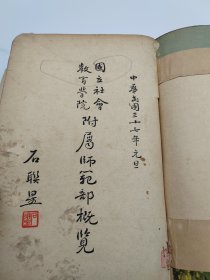 中華民國三十七年元旦
國立社會
教育學院
附屬師範部概覽
石聯星